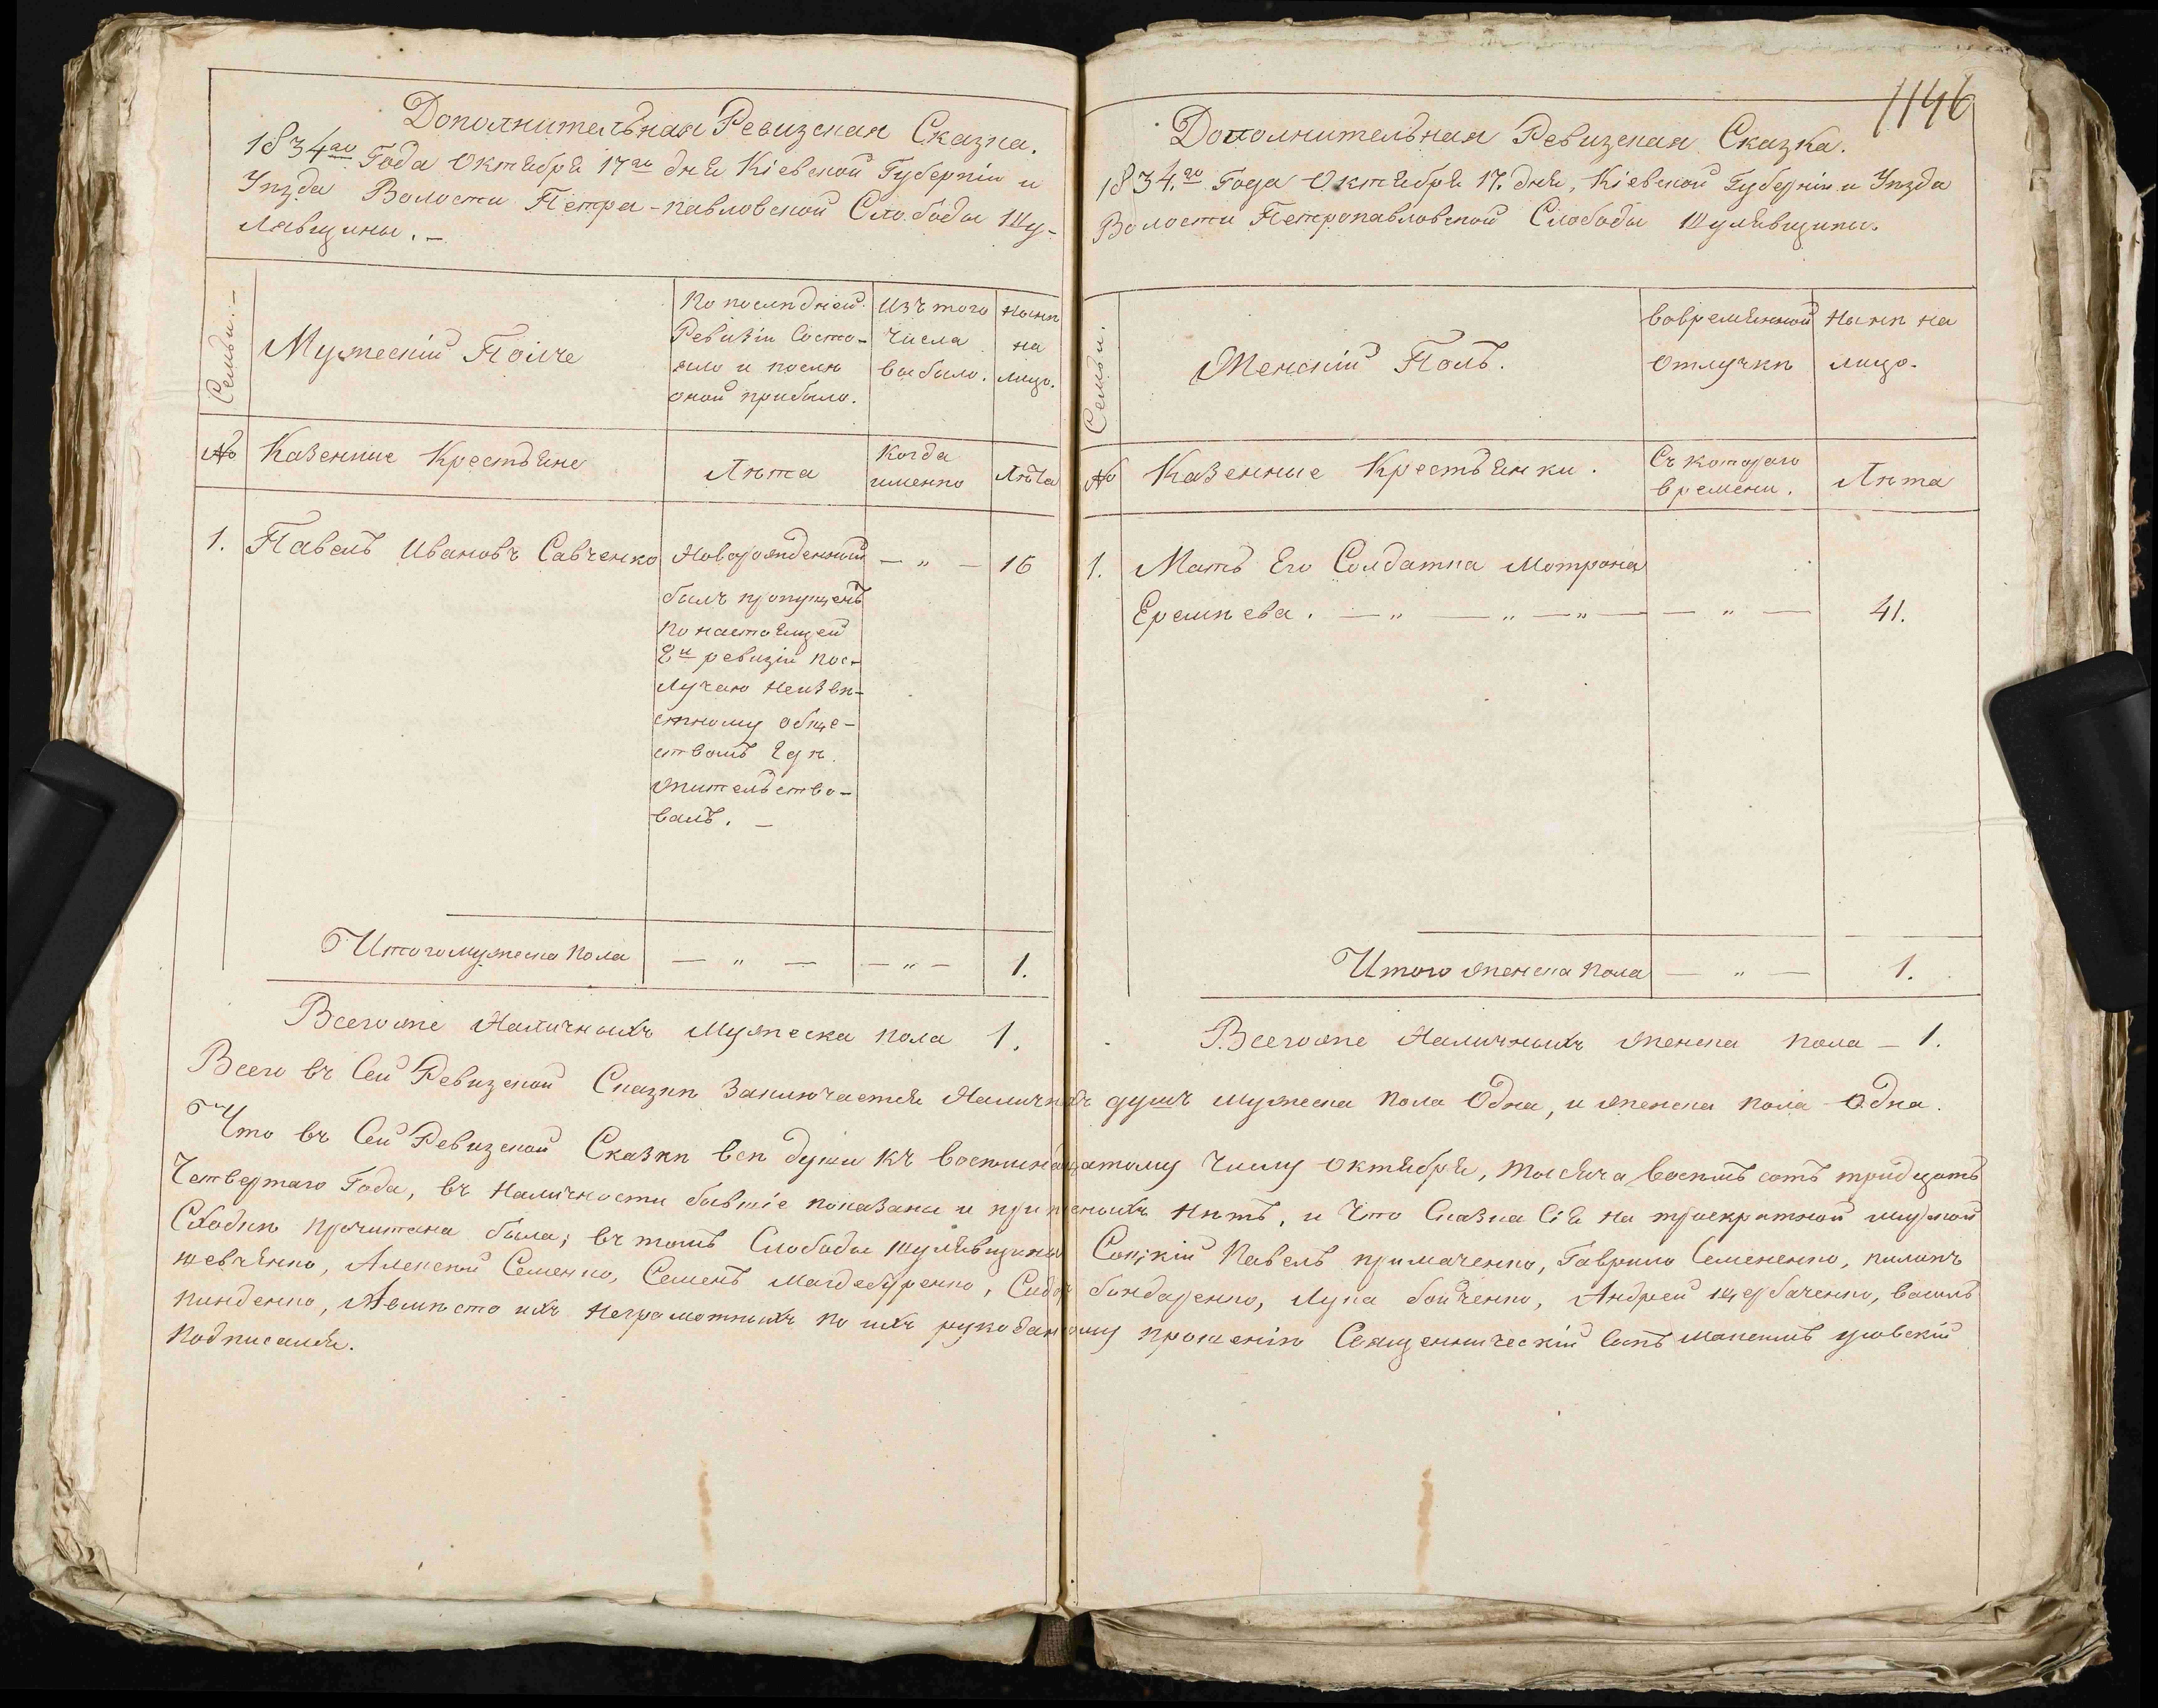 Дополнительная Ревизская Сказка.
1834го Года Октября 17го дня Кіевской Губерніи и
Уѣзда Волости Петра-павловской Слободы Шу-
лявщины. –
Семьи. –
Мужескій Полъ
По послѣдней
Ревизіи Состо-
яло и послѣ
оной прибыло.
Изъ того
числа
выбыло.
Нынѣ
на
лицо.
№
Казенные Крестьяне
Лѣта
Когда
именно
Лѣта
1.
Павелъ Ивановъ Савченко
Новорожденный
былъ пропущенъ
по настоящей
8й ревизіи пос-
лучаю неизвѣ-
стному обще-
ствомъ гдѣ
жительство-
валъ. –
– „ –
16
Итого мужеска пола
– „ –
– „ –
1.
Всего же Наличныхъ Мужеска пола 1.
1146
Дополнительная Ревизская Сказка.
1834.го Года Октября 17. дня, Кіевской Губерніи и Уѣзда
Волости Петропавловской Слободы Шулявщины.
Семьи.
Женскій Полъ.
вовременной
отлучкѣ
Нынѣ на
лицо.
№
Казенные Крестьянки.
Съ котораго
времени.
Лѣта
1.
Мать Его Солдатка Мотрона
Еремѣева. – „ – „ – „ –
– „ –
41.
Итого женска пола
– „ –
1.
Всего же Наличныхъ женска пола – 1.
Всего въ Сей Ревизской Сказкѣ Заключается Наличныхъ душъ мужеска пола Одна, и женска пола Одна.
Что въ Сей Ревизской Сказкѣ всѣ души къ восемнадцатому числу Октября, тысяча восемь сотъ тридцать
Четвертаго Года, въ Наличности бывшіе показаны и нѣтъ, и Что Сказка Сія на троекратной мирской
Сходкѣ прочитана была; въ томъ Слободы шулявщины Соцкій Павелъ примаченко, Гаврило Семененко, пилипъ
шевченко, Алексей Семенко, Семенъ Сидоръ бондаренко, Лука бойченко, Андрей щербаченко, василь
Авмѣсто ихъ Неграмотныхъ по ихъ рукоданному прошенію Священническій Сынъ
подписался.